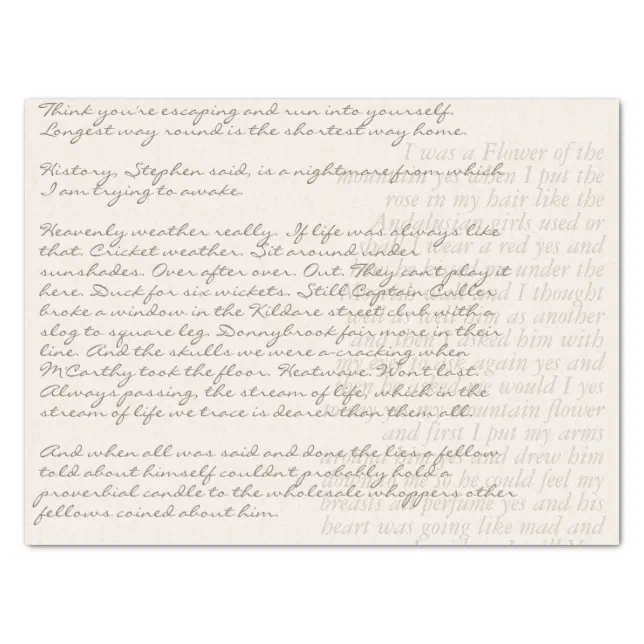 Think you're escaping and run into yourself.
Longest way round is the shortest way home.
History, Stephen said, is a nightmare from which
I am trying to awake.
Heavenly weather really. If life was always like
that. Cricket weather. Sit around under
sunshades. Over after over. Out. They can't play it
here. Duck for six wickets. Still Captain Culler
broke a window in the Kildare street club with a
slog to square leg. Donnybrook fair more in their
line. And the skulls we were acracking when
M'Carthy took the floor. Heatwave. Won't last.
Always passing, the stream of life, which in the
stream of life we trace is dearer than them all.
And when all was said and done the lies a fellow
told about himself couldn't probably hold a
proverbial candle to the wholesale whoppers other
fellows coined about him.
I was a Flower of the
mountain yes when I put the
rose in my hair like the
Andalusian girls used or
shall I wear a red yes and
under the
and I thought
well as well him as another
and then I asked him with
my eyes to ask again yes and
then he asked me would I yes
mountain flower
and first I put my arms
around him yes and drew him
down to me so he could feel my
breasts all perfume yes and his
heart was going like mad and